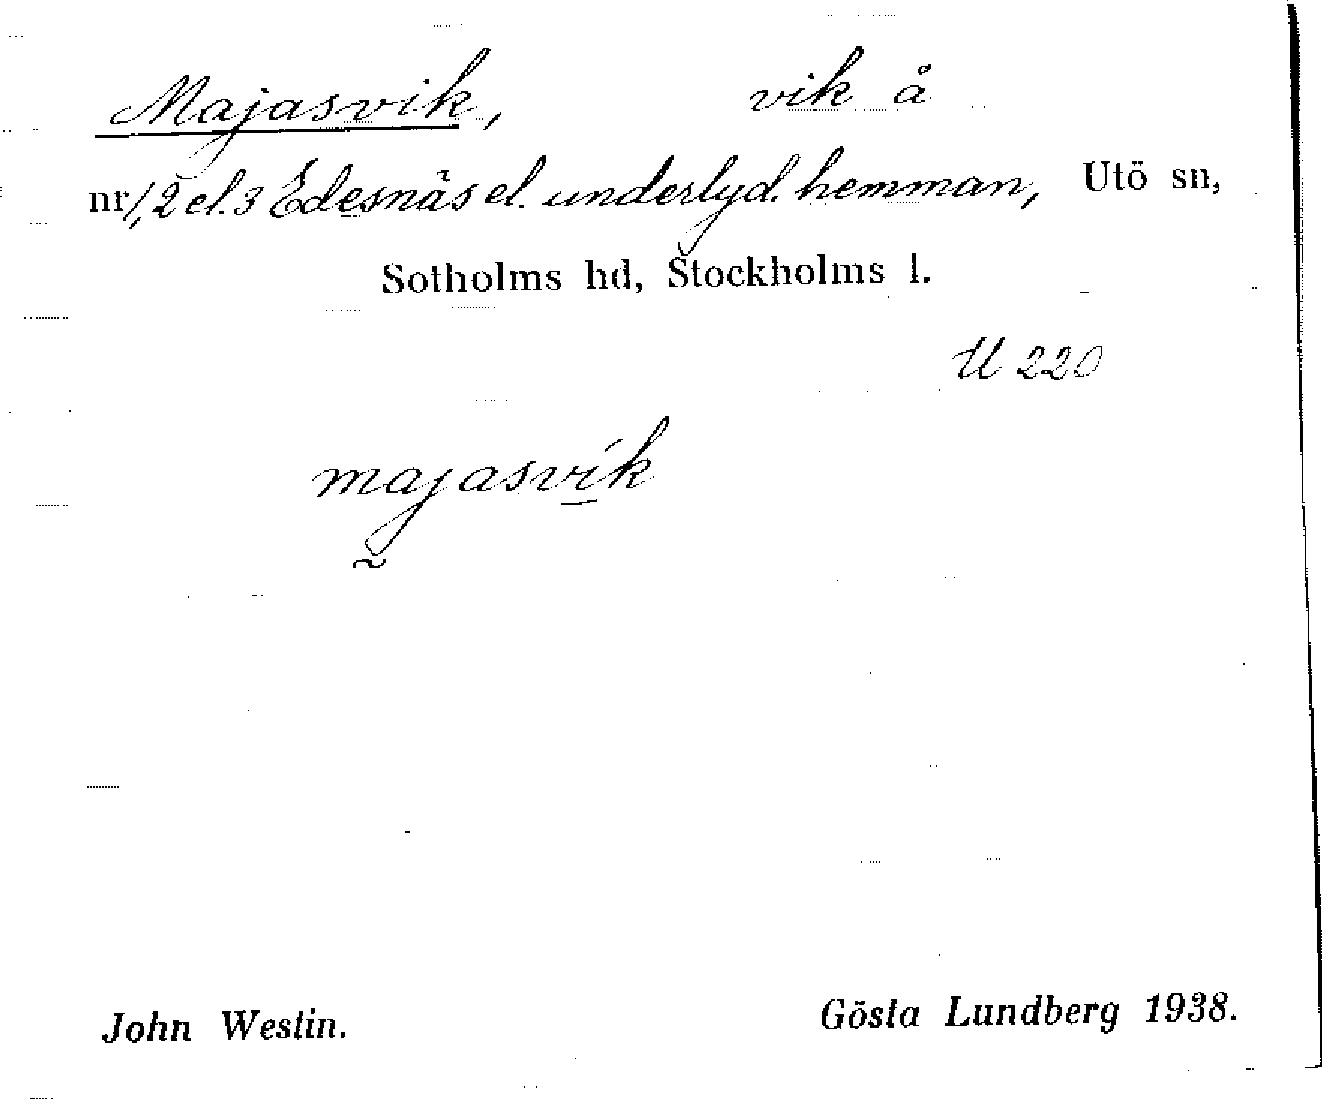 Majasvik, vik å
nr 1, 2 el. 3 Edesnäs el. underlyd. hemman, Utö sn,
Sotholms hd, Stockholms l.
U 220
majasvík
John Westin. Gösta Lundberg 1938.